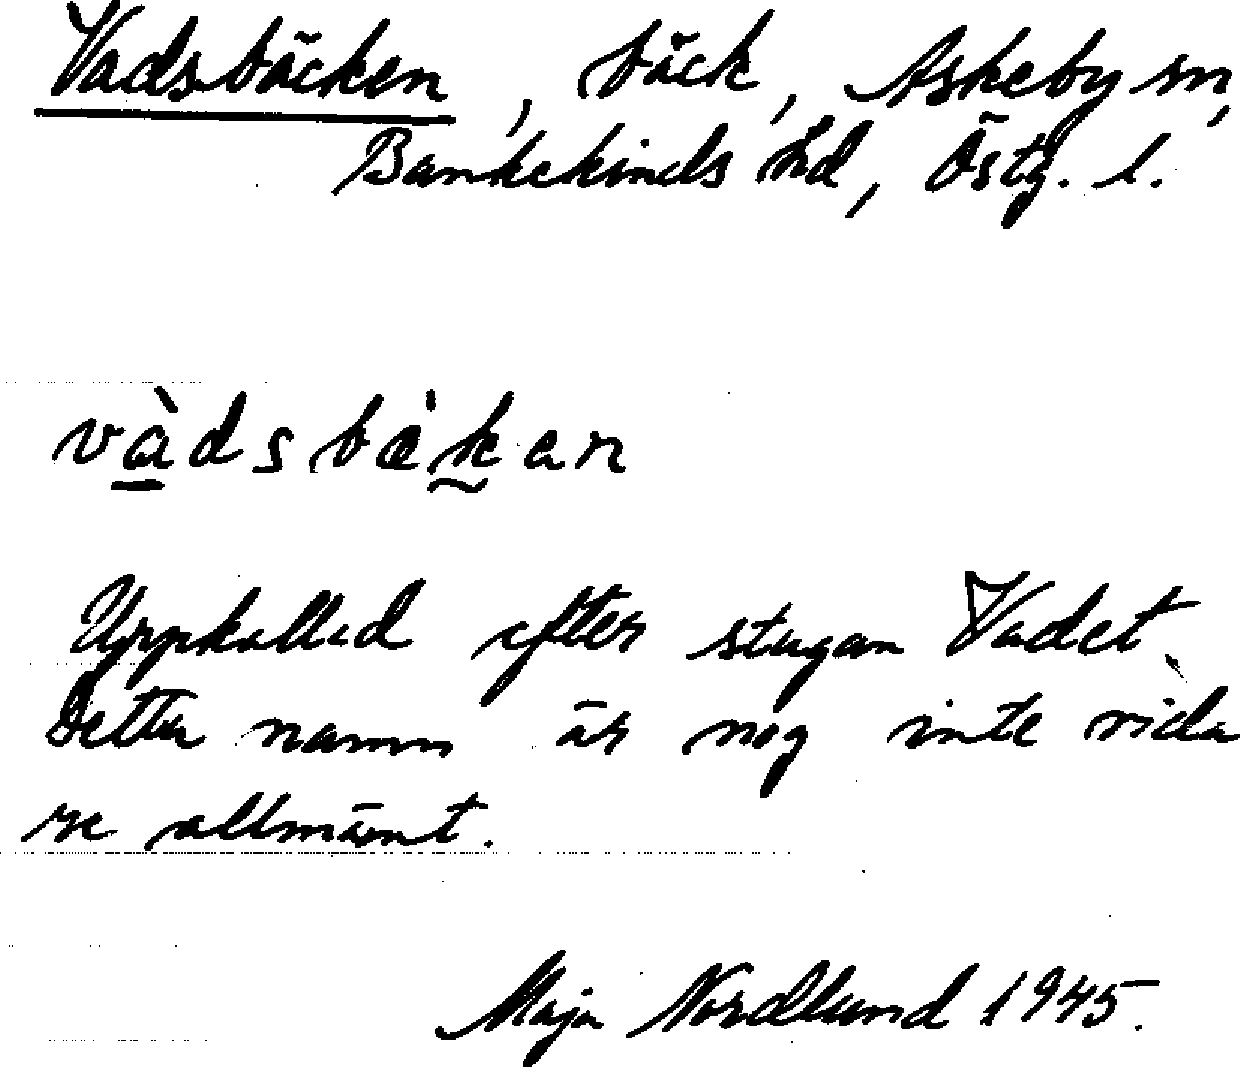 Vadsbäcken, bäck, Askeby sn,
Bankekinds hd, Östg. l.
vàdsbäkan
Uppkallad efter stugan Vadet.
Detta namn är nog inte vida
re allmänt.
Maja Nordlund 1945.